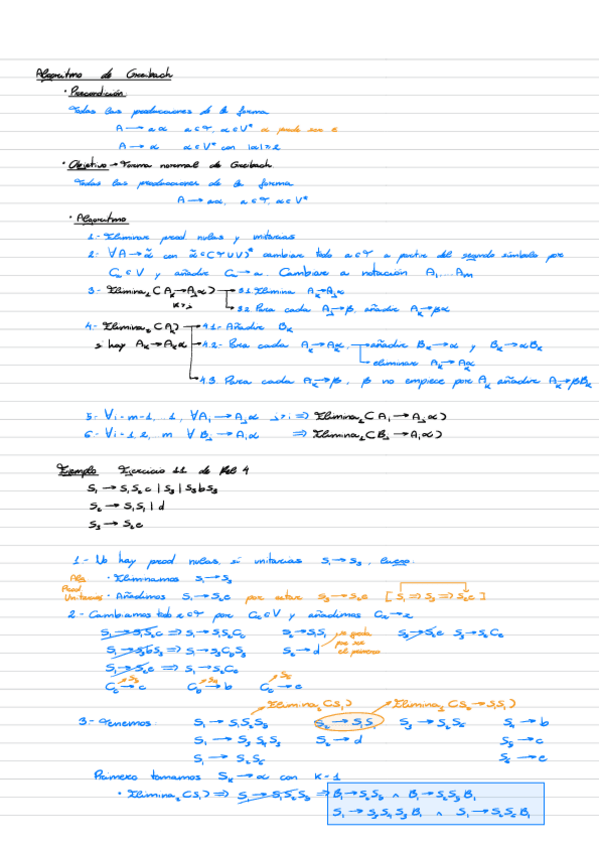 Algoritmo de Greibach
· Precondición
Todas las producciones de la forma
A → aα a∈T, α∈V* α puede ser ε
A → α α∈V* con |α|≥2
· Objetivo → Forma normal de Greibach
Todas las producciones de la forma
A → aα, a∈T, α∈V*
· Algoritmo
1.- Eliminar prod nulas y unitarias
2.- ∀A→α̃ con α̃∈(T∪V)* cambiar todo a∈T a partir del segundo símbolo por
Ca∈V y añadir Ca→a. Cambiar a notación A1...Am
3.- Elimina1(Ak→Ajα) 3.1 Elimina Ak→Ajα
k>j 3.2 Para cada Aj→β, añadir Ak→βα
4.- Elimina2(Aj) 4.1.- Añadir Bk
si hay Ak→Akα 4.2.- Para cada Ak→Akα, añadir Bk→α y Bk→αBk
eliminar Ak→Akα
4.3. Para cada Ak→β, β no empiece por Ak añadir Ak→βBk
5.- ∀i=m-1,...1, ∀Ai→Ajα j>i ⇒ Elimina1(Ai→Ajα)
6.- ∀i=1,2, m ∀Bj→Aiα ⇒ Elimina1(Bj→Aiα)
Ejemplo Ejercicio 11 de Rel 4
S1 → S1S2c | S3 | S3bS3
S2 → S1S1 | d
S3 → S2e
1.- No hay prod nulas, sí unitarias S1→S3,
Alg · Eliminamos S1→S3
Prod
Unitarias · Añadimos S1→S2e por estar S3→S2e [S1⇒S3⇒S2e]
2.- Cambiamos todo a∈T por Ca∈V y añadimos Ca→a
S1→S1S2c ⇒ S1→S1S2Cc S2→S1S1 se queda S3→S2e S3→S2Ce
S1→S3bS3 ⇒ S1→S3CbS3 S2→d por ser el primero
S1→S2e ⇒ S1→S2Ce
Cc→c S5 Cb→b S4 Ce→e S6
Elimina2(S1) Elimina1(S2→S1S1)
3.- Tenemos: S1→S1S2S5 S2→S1S1 S3→S2S6 S4→b
S1→S3S4S3 S2→d S5→c
S1→S2S6 S6→e
Primero tomamos Sk→α con k=1
· Elimina2(S1) ⇒ S1→S1S2S5 ⇒ B1→S2S5 ∧ B1→S2S5B1
S1→S3S4S3B1 ∧ S1→S2S6B1